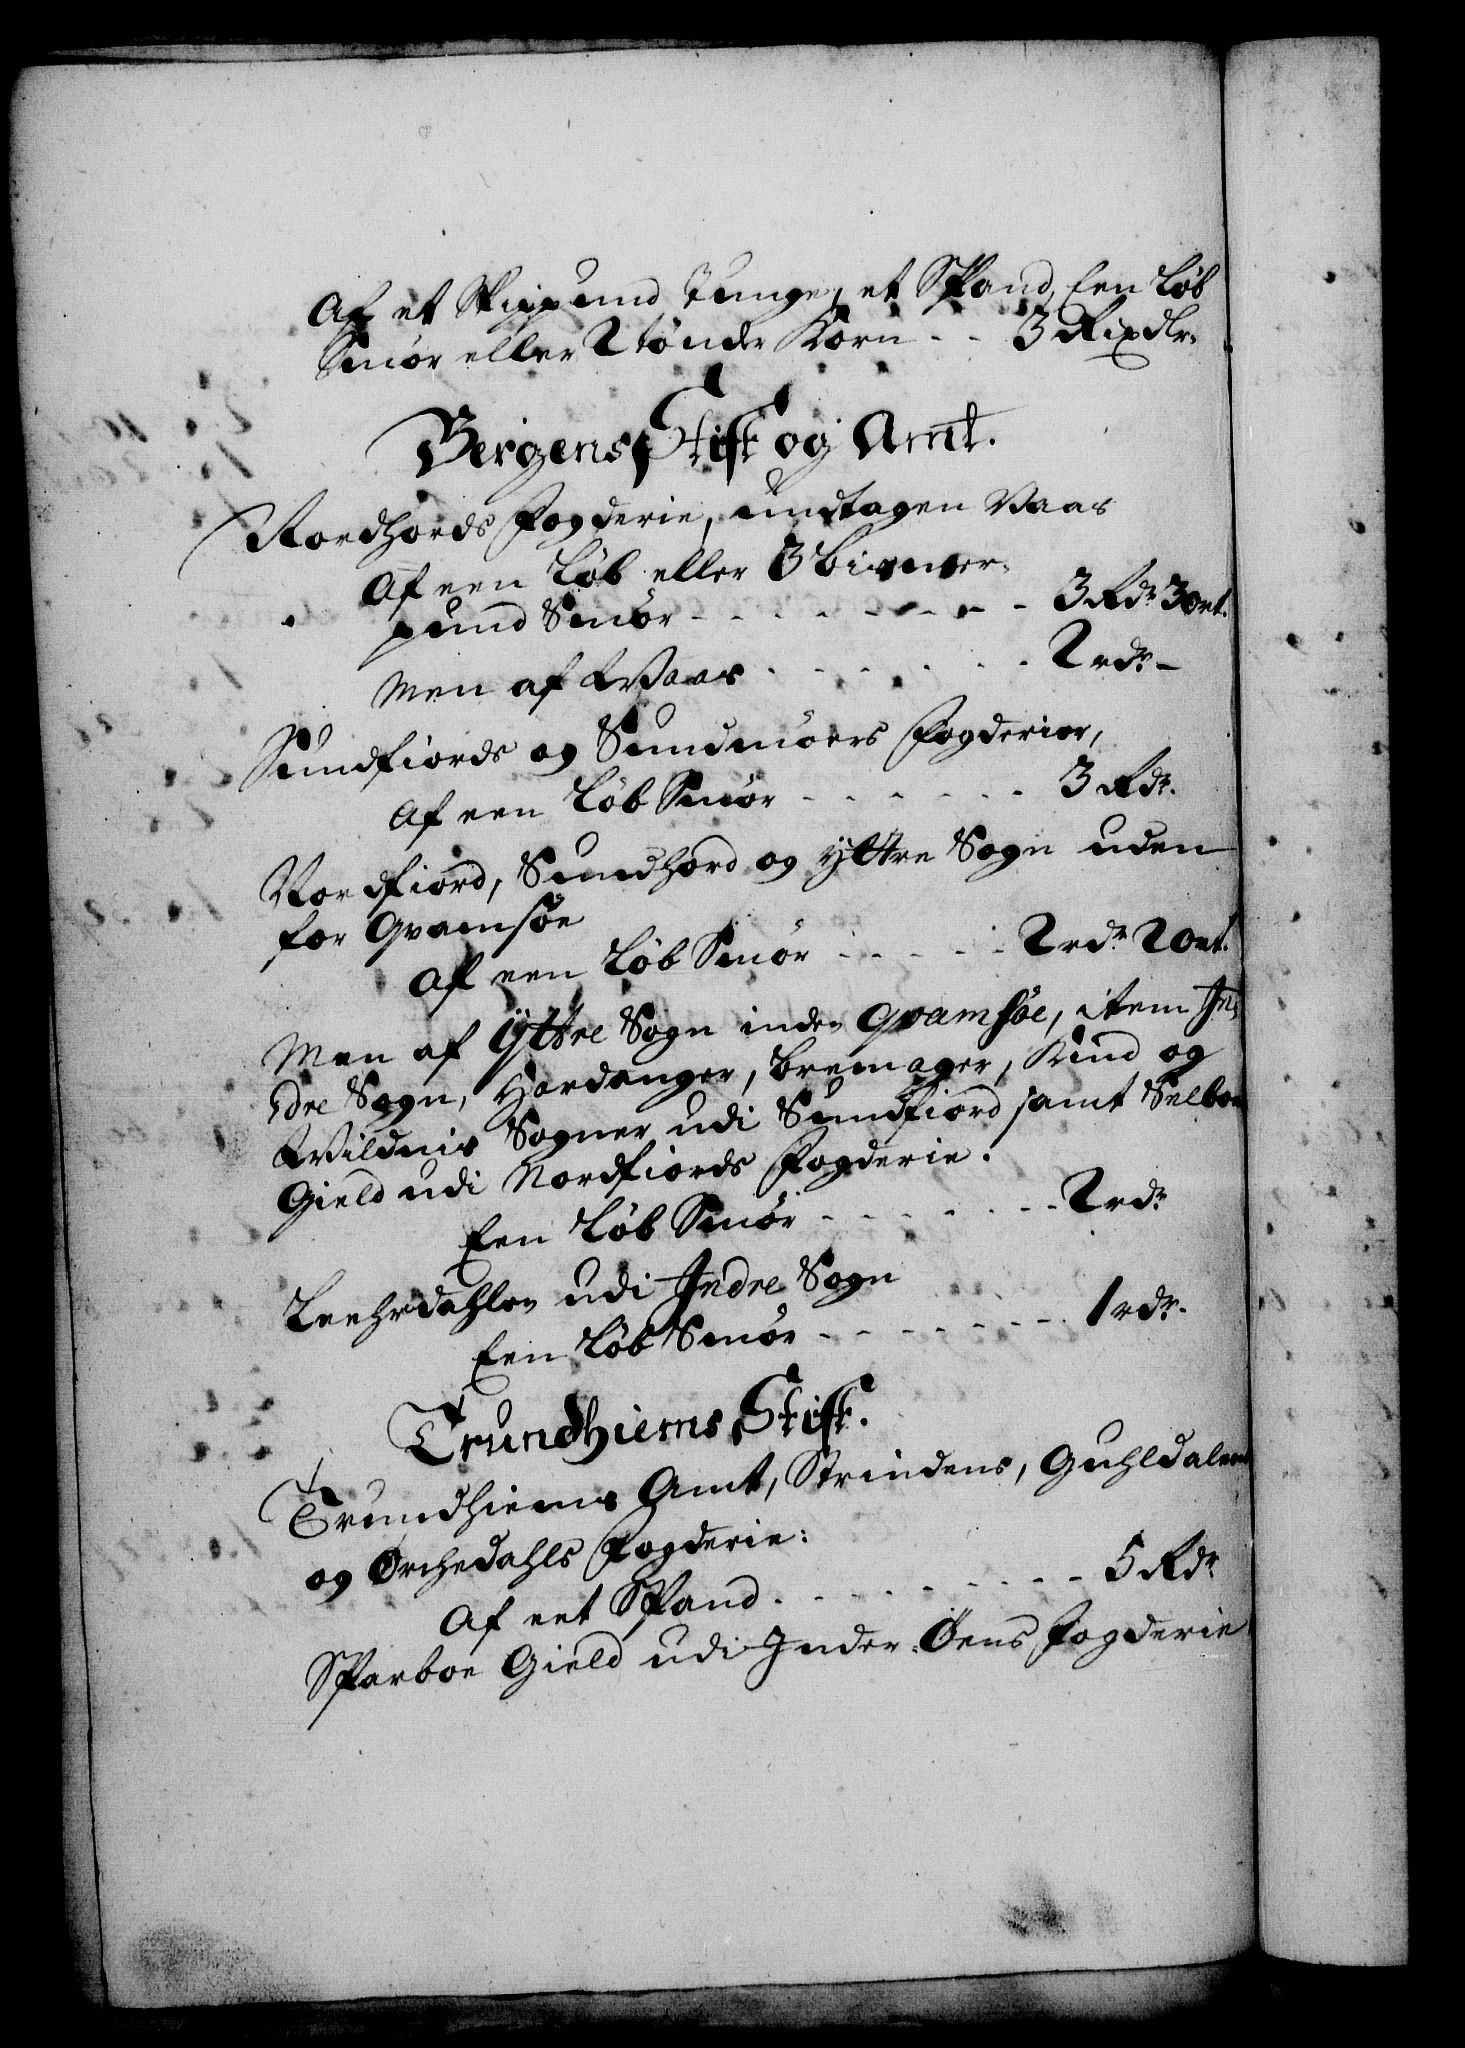 Af et Skippund Tunge, et Spand, Een Løb
Smør eller 2 tønde Korn - - 3 Rixdlr.
Bergens Stift og Amt.
Nordhords Fogderie, undtagen Vaas
Af een Løb eller 3 bismer-
pund Smør - - - - - - - - - 3 Rdr 3 ort.
Men af Waas - - - - - - - 2 rdr -
Sundfiords og Sundmøers Fogderier,
Af een Løb Smør - - - - - - 3 Rdr.
Nordfiord, Sundhord og yttre Sogn uden
for Qvamsøe
Af een Løb Smør - - - - - 2 rdr 2 ort.
Men af Yttre Sogn inden Qvamsøe, item In-
dre Sogn, Hardanger, Bremager, Kind og
Wildnis Sogner udi Sundfiord samt Selboe
Gield udi Nordfiords Fogderie.
Een Løb Smør - - - - - - - 2 rdr
Leehrdahlen udi Indre Sogn
Een Løb Smør - - - - - - - 1 rdr.
Trundhiems Stift.
Trundhiems Amt, Strindens, Guhldalens
og Orchedahls Fogderie:
Af eet Spand. - - - - - - - - 5 Rdr
Sparboe Gield udi Inder-Øens Fogderie